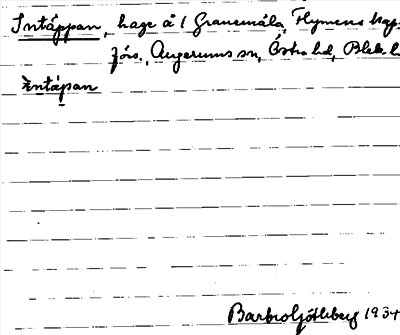 Intäppan, hage å 1 Granemåla, Flymens kap-
förs., Augerums sn, Östra hd, Blek. l.
intápan
Barbro Götliberg 1934